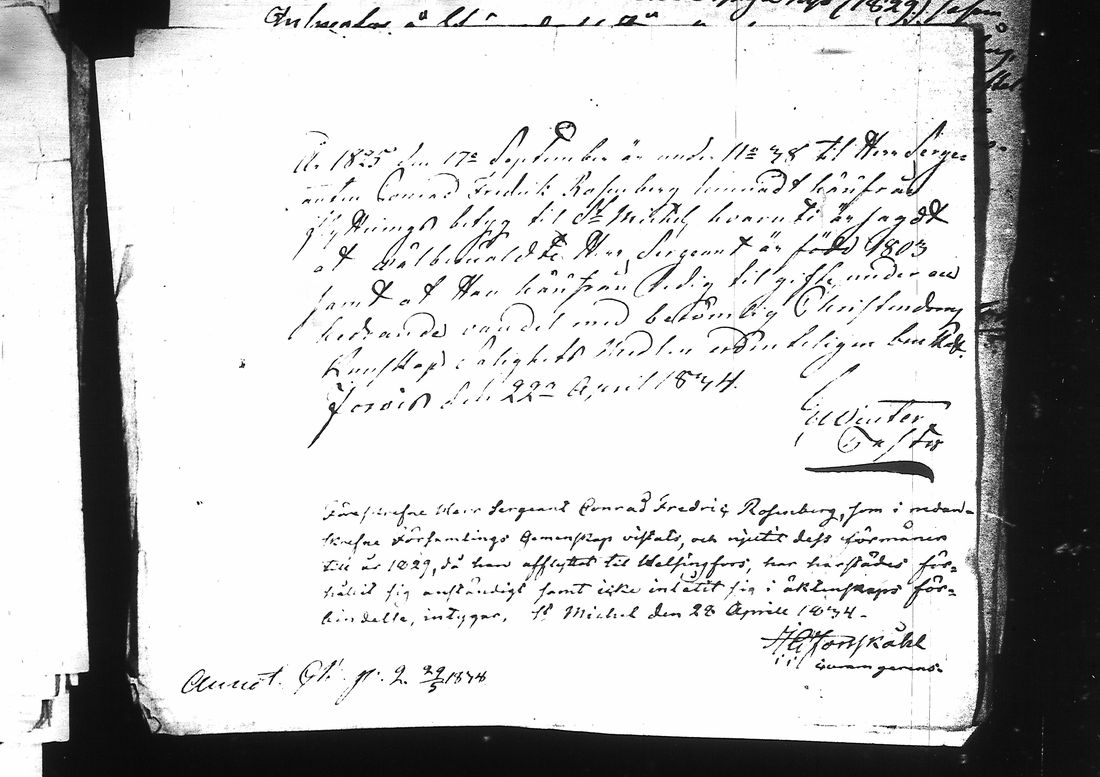 År 1825 den 17de September är under No 38 til Herr Serge-
anten Conrad Fredrik Rosenberg lemnadt härifrån
flyttnings betyg til St Michel, hvaruti är sagdt
at Herr Sergeant är född 1803
samt at Han härifrån ledig til gifte, under en
hedrande vandel med berömlig Christendoms
Kunskap, Salighets Medlen ordenteligen
Jorois den 22a April 1834.
Winter
Pastor
Föreskrefne Herr Sergeant Conrad Fredric Rosenberg, som i nedan-
skrefne Församlings Gemenskap vistats, och njutit dess förmåner
till år 1829, då han afflyttat til Helsingfors, har härstädes för-
hållit sig anständigt samt icke inlåtit sig i äktenskaps för-
bindelse, intygar, St Michel den 28 Aprill 1834.
Annot. p: 2. 29/5 1838
(1829)